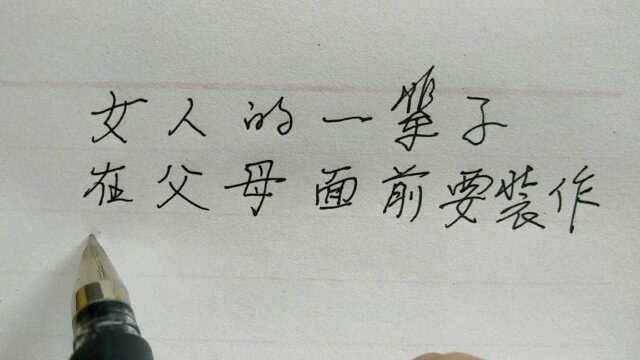 女人的一辈子
在父母面前要装作